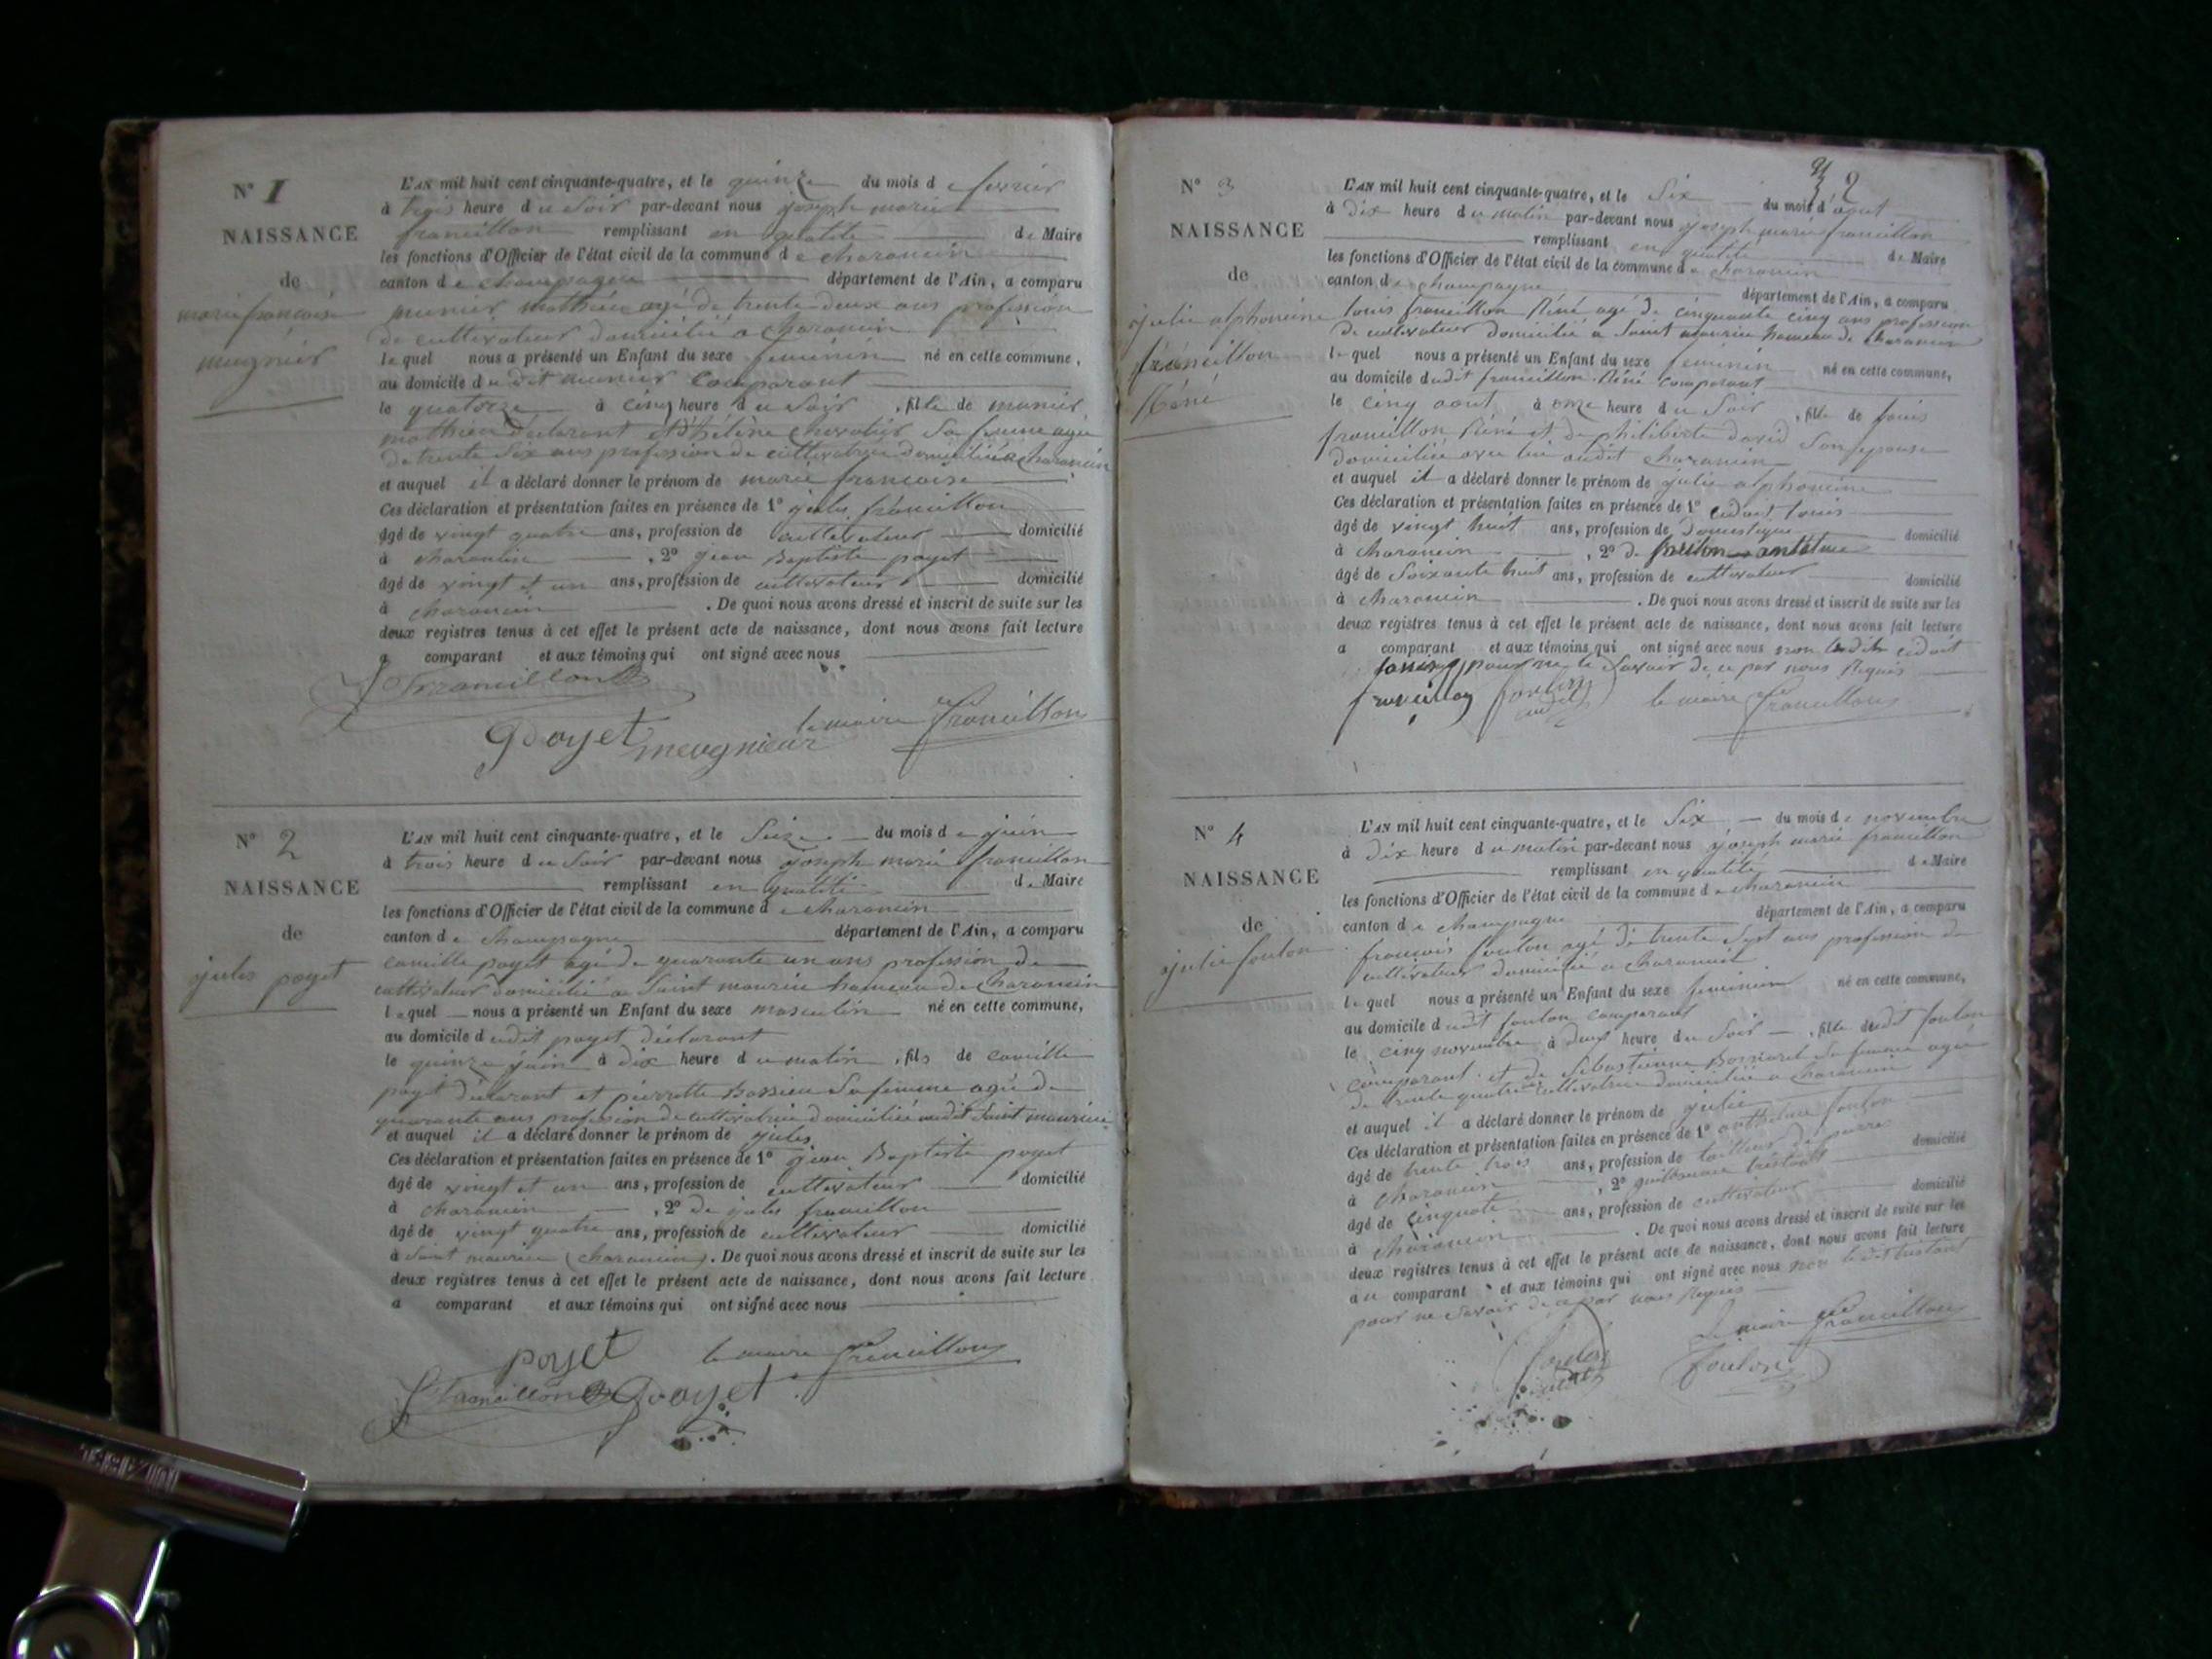 N° 1
NAISSANCE
de
marie francoise
mugnier
L'AN mil huit cent cinquante-quatre, et le quinze du mois de fevrier
à trois heure du soir par-devant nous joseph marie
francillon remplissant en qualité de Maire
les fonctions d'Officier de l'état civil de la commune de charancin
canton de champagne département de l'Ain, a comparu
munier mathieu agé de trente deux ans profession
de cultivateur domicilié a charancin
lequel nous a présenté un Enfant du sexe feminin né en cette commune,
au domicile dudit munier comparant
le quatorze à cinq heure du soir, fille de munier
mathieu déclarant et hélène chevalier sa femme agée
de trente six ans profession de cultivatrice domiciliée a charancin
et auquel il a déclaré donner le prénom de marie francoise
Ces déclaration et présentation faites en présence de 1° jules francillon
âgé de vingt quatre ans, profession de cultivateur domicilié
à charancin, 2° jean Baptiste poyet
âgé de vingt et un ans, profession de cultivateur domicilié
à charancin. De quoi nous avons dressé et inscrit de suite sur les
deux registres tenus à cet effet le présent acte de naissance, dont nous avons fait lecture
a comparant et aux témoins qui ont signé avec nous
Francillon
Poyet meugnieur le maire Francillon
N° 2
NAISSANCE
de
jules poyet
L'AN mil huit cent cinquante-quatre, et le Seize du mois de juin
à trois heure du soir par-devant nous joseph marie francillon
remplissant en qualité de Maire
les fonctions d'Officier de l'état civil de la commune de charancin
canton de champagne département de l'Ain, a comparu
camille poyet agé de quarante un ans profession de
cultivateur domicilié a saint maurice hameau de charancin
lequel nous a présenté un Enfant du sexe masculin né en cette commune,
au domicile dudit poyet déclarant
le quinze juin à dix heure du matin, fils de camille
poyet déclarant et pierrette Bossieu sa femme agée de
quarante ans profession de cultivatrice domiciliée audit saint maurice
et auquel il a déclaré donner le prénom de jules
Ces déclaration et présentation faites en présence de 1° jean Baptiste poyet
âgé de vingt et un ans, profession de cultivateur domicilié
à charancin, 2° de jules francillon
âgé de vingt quatre ans, profession de cultivateur domicilié
à saint maurice (charancin). De quoi nous avons dressé et inscrit de suite sur les
deux registres tenus à cet effet le présent acte de naissance, dont nous avons fait lecture
a comparant et aux témoins qui ont signé avec nous
poyet le maire Francillon
Francillon Poyet
N° 3
NAISSANCE
de
julie alphonsine
francillon
Réné
L'AN mil huit cent cinquante-quatre, et le Six du mois d'aout
à Dix heure du matin par-devant nous joseph marie francillon
remplissant en qualité de Maire
les fonctions d'Officier de l'état civil de la commune de charancin
canton de champagne département de l'Ain, a comparu
louis francillon Réné agé de cinquante cinq ans profession
de cultivateur domicilié a saint maurice hameau de charancin
lequel nous a présenté un Enfant du sexe feminin né en cette commune,
au domicile dudit francillon Réné comparant
le cinq aout à onze heure du soir, fille de louis
francillon Réné et de philiberte david son épouse
domiciliée avec lui audit charancin
et auquel il a déclaré donner le prénom de julie alphonsine
Ces déclaration et présentation faites en présence de 1° louis
âgé de vingt huit ans, profession de Domestique domicilié
à charancin, 2° de
âgé de soixante huit ans, profession de cultivateur domicilié
à charancin. De quoi nous avons dressé et inscrit de suite sur les
deux registres tenus à cet effet le présent acte de naissance, dont nous avons fait lecture
a comparant et aux témoins qui ont signé avec nous non ledit
pour ne le savoir de ce par nous Requis
francillon le maire Francillon
N° 4
NAISSANCE
de
julie foulon
L'AN mil huit cent cinquante-quatre, et le Six du mois de novembre
à Dix heure du matin par-devant nous joseph marie francillon
remplissant en qualité de Maire
les fonctions d'Officier de l'état civil de la commune de charancin
canton de champagne département de l'Ain, a comparu
francois foulon agé de trente sept ans profession de
cultivateur domicilié a charancin
lequel nous a présenté un Enfant du sexe feminin né en cette commune,
au domicile dudit foulon comparant
le cinq novembre à deux heure du soir, fille dudit foulon
comparant et de Sébastienne sa femme agée
de trente quatre cultivatrice domiciliée a charancin
et auquel il a déclaré donner le prénom de julie
Ces déclaration et présentation faites en présence de 1° anthelme foulon
âgé de trente trois ans, profession de tailleur de pierre domicilié
à charancin, 2° guillaume tristant
âgé de cinquate ans, profession de cultivateur domicilié
à charancin. De quoi nous avons dressé et inscrit de suite sur les
deux registres tenus à cet effet le présent acte de naissance, dont nous avons fait lecture
au comparant et aux témoins qui ont signé avec nous non ledit tristant
pour ne savoir de ce par nous Requis
Le maire Francillon
foulon